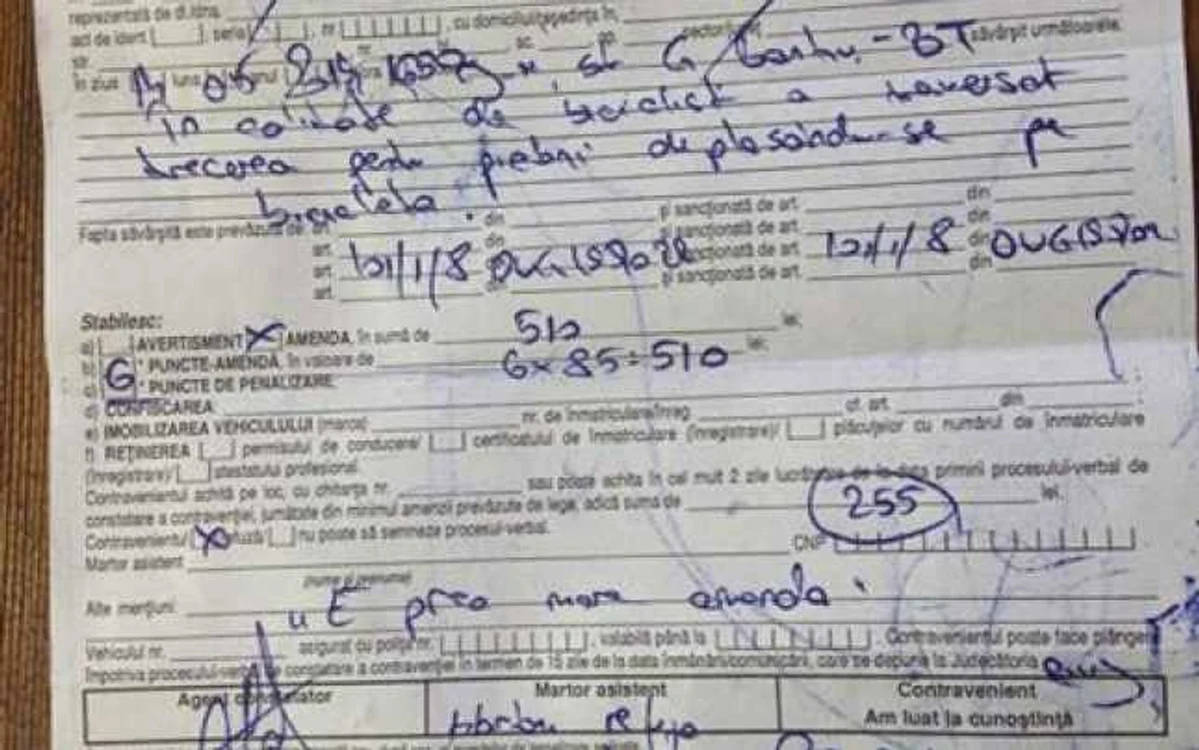 reprezentată de dl./dna.
act de ident. seria nr. cu domiciliul/sediul în,
str. nr. bl. sc. ap. sector/
în ziua luna 05 anul 2015 ora 1657 str G - BT săvârșit următoarele:
în calitate de biciclist a traversat
trecerea pentru pietoni deplasându-se pe
bicicleta.
Fapta săvârșită este prevăzută de: art. din și sancționată de art. din
art. din și sancționată de art. din
art. 121/1/8 din OUG 195/2002 și sancționată de art. 121/1/8 din OUG 195/2002
art. din și sancționată de art. din
Stabilesc:
a) AVERTISMENT X AMENDA, în sumă de 510 lei;
b) 6 * PUNCTE-AMENDĂ, în valoare de 6x85=510 lei;
c) * PUNCTE DE PENALIZARE
d) CONFISCAREA
e) IMOBILIZAREA VEHICULULUI (marca) nr. de înmatriculare/înreg. cf. art. din
f) REȚINEREA permisului de conducere/ certificatului de înmatriculare (înregistrare)/ plăcuțelor cu numărul de înmatriculare
(înregistrare)/ atestatului profesional.
Contravenientul achită pe loc, cu chitanța nr. sau poate achita în cel mult 2 zile lucrătoare de la data primirii procesului-verbal de
constatare a contravenției, jumătate din minimul amenzii prevăzute de lege, adică suma de 255 lei.
Contravenientul X refuză/ nu poate să semneze procesul-verbal.
Martor asistent CNP
(nume și prenume)
Alte mențiuni: "E prea mare amenda.
Vehiculul nr. asigurat cu polița nr. valabilă până la Contravenientul poate face plângere
împotriva procesului-verbal de constatare a contravenției în termen de 15 zile de la data înmânării/comunicării, care se depune la Judecătoria
Agent constatator Martor asistent Contravenient
Am luat la cunoștință